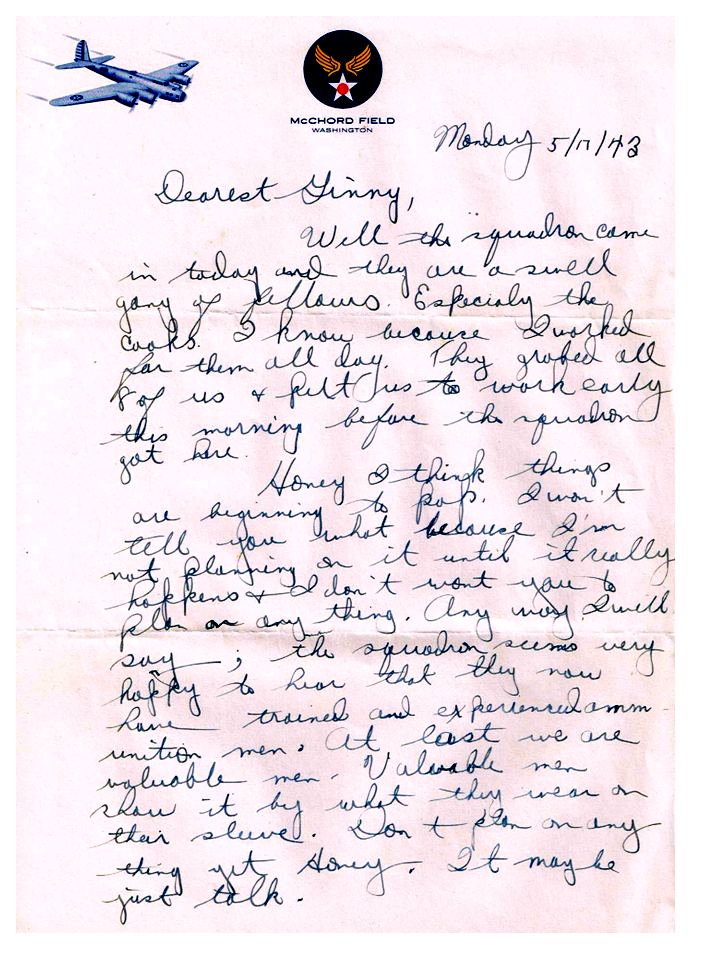 McCHORD FIELD
WASHINGTON
Monday 5/17/43
Dearest Ginny,
Well the squadron came
in today and they are a swell
gang of fellows. Especialy the
cooks. I know because I worked
for them all day. They grobed all
8 of us & putt us to work early
this morning before the squadron
got here.
Honey I think things
are beginning to pop. I won't
tell you what because I'm
not planning on it until it really
happens & I don't wont you to
plan on any thing. Any way I will
say ; the squadron seems very
happy to hear that they now
have trained and experienced amm-
unition men. At last we are
valuable men. Valuable men
show it by what they wear on
their sleeve. Don't plan on any
thing yet Honey. It may be
just talk.